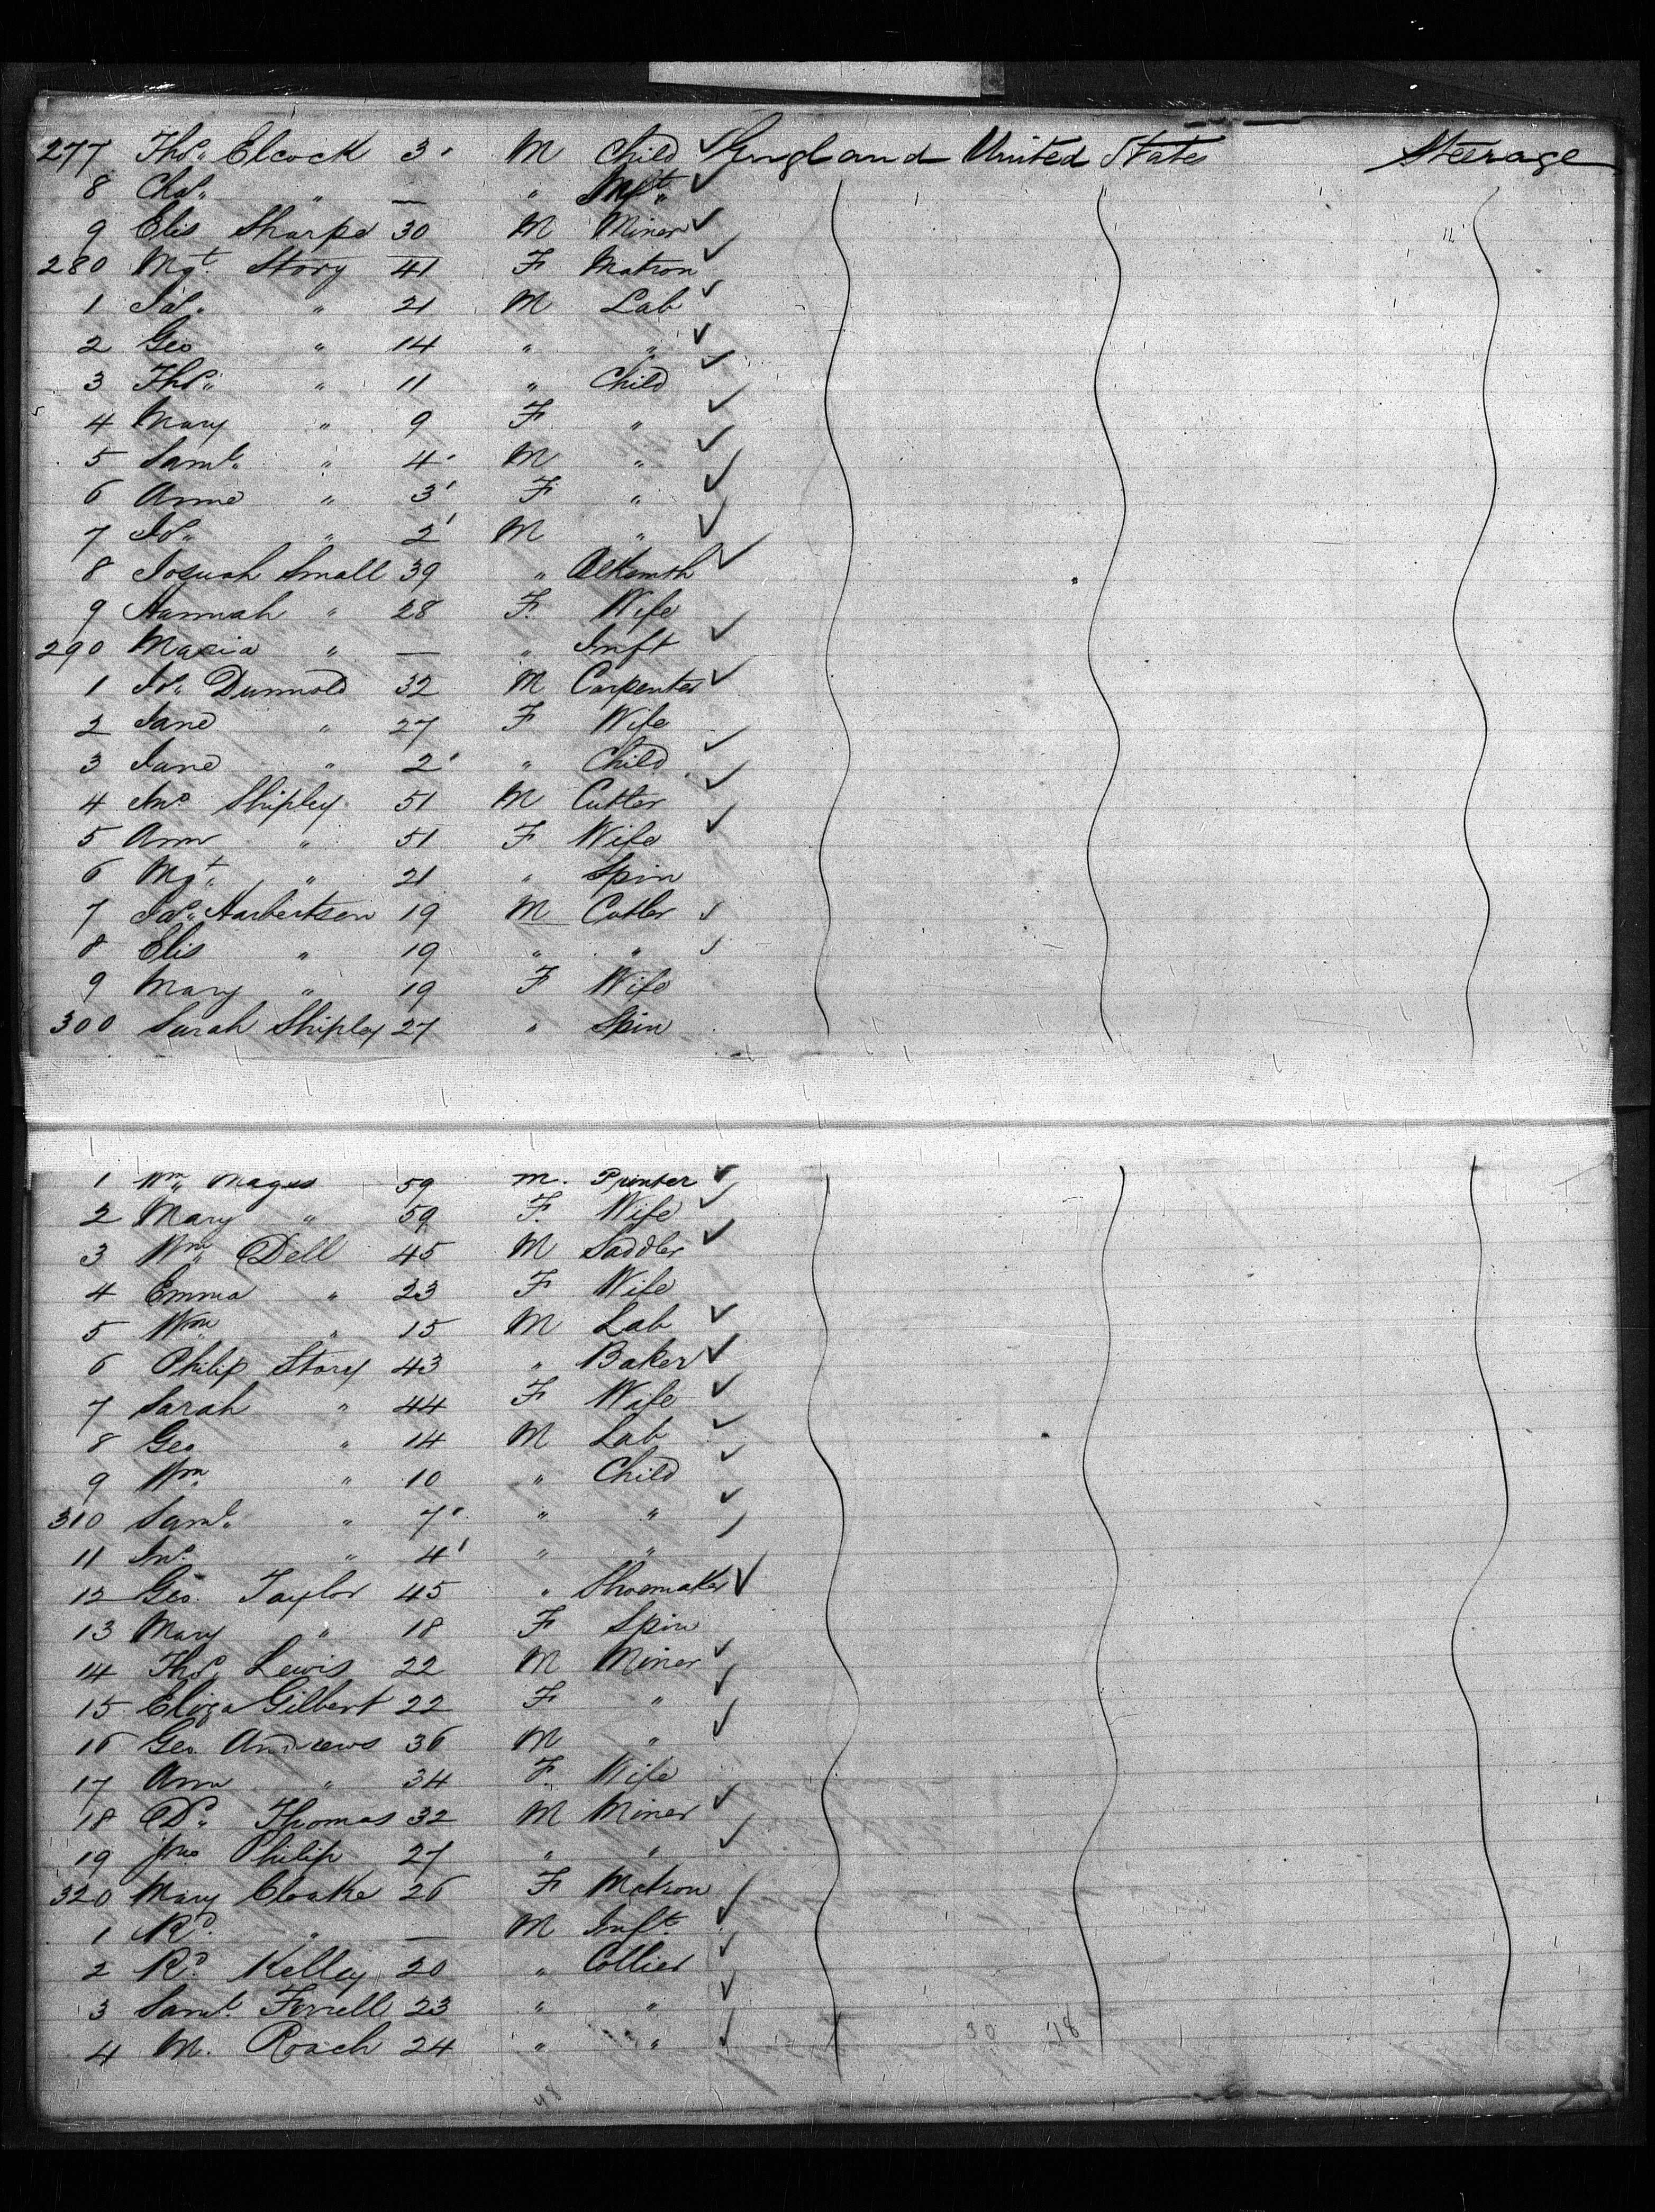 277 Thos. Elcock 3 M Child England United States Steerage
8 Chas. " — " Inft.
9 Elis Sharpe 30 M Miner
280 Mgt. Story 41 F Matron
1 Jas. " 21 M Lab
2 Geo " 14 " "
3 Thos. " 11 " Child
4 Mary " 9 F "
5 Saml. " 4 M "
6 Anne " 3 F "
7 Js. " 2 M "
8 Josuah Small 39 " Blksmth
9 Hannah " 28 F. Wife
290 Maria " — " Inft
1 Js. Dunnold 32 M Carpenter
2 Jane " 27 F Wife
3 Jane " 2 " Child
4 Jno Shipley 51 M Cutler
5 Ann " 51 F Wife
6 Mgt. " 21 " Spin
7 Jas. Harbertson 19 M Cutler
8 Elis " 19 " "
9 Mary " 19 F Wife
300 Sarah Shipley 27 " Spin
1 Wm. Mages 59 M. Printer
2 Mary " 59 F. Wife
3 Wm. Dell 45 M Saddler
4 Emma " 23 F Wife
5 Wm. " 15 M Lab
6 Philip Story 43 " Baker
7 Sarah " 44 F Wife
8 Geo " 14 M Lab
9 Wm. " 10 " Child
310 Saml. " 7 " "
11 Jno. " 4 " "
12 Geo. Taylor 45 " Shoemaker
13 Mary " 18 F Spin
14 Thos. Lewis 22 M Miner
15 Eliza Gilbert 22 F "
16 Geo. Andrews 36 M "
17 Ann " 34 F. Wife
18 Dd. Thomas 32 M Miner
19 Jno. Philip 27 " "
320 Mary Cloake 26 F Matron
1 Rd. " — M Inft.
2 Rd. Kelley 20 " Collier
3 Saml. Ferrell 23 " "
4 M. Roach 24 " "
30 18
48